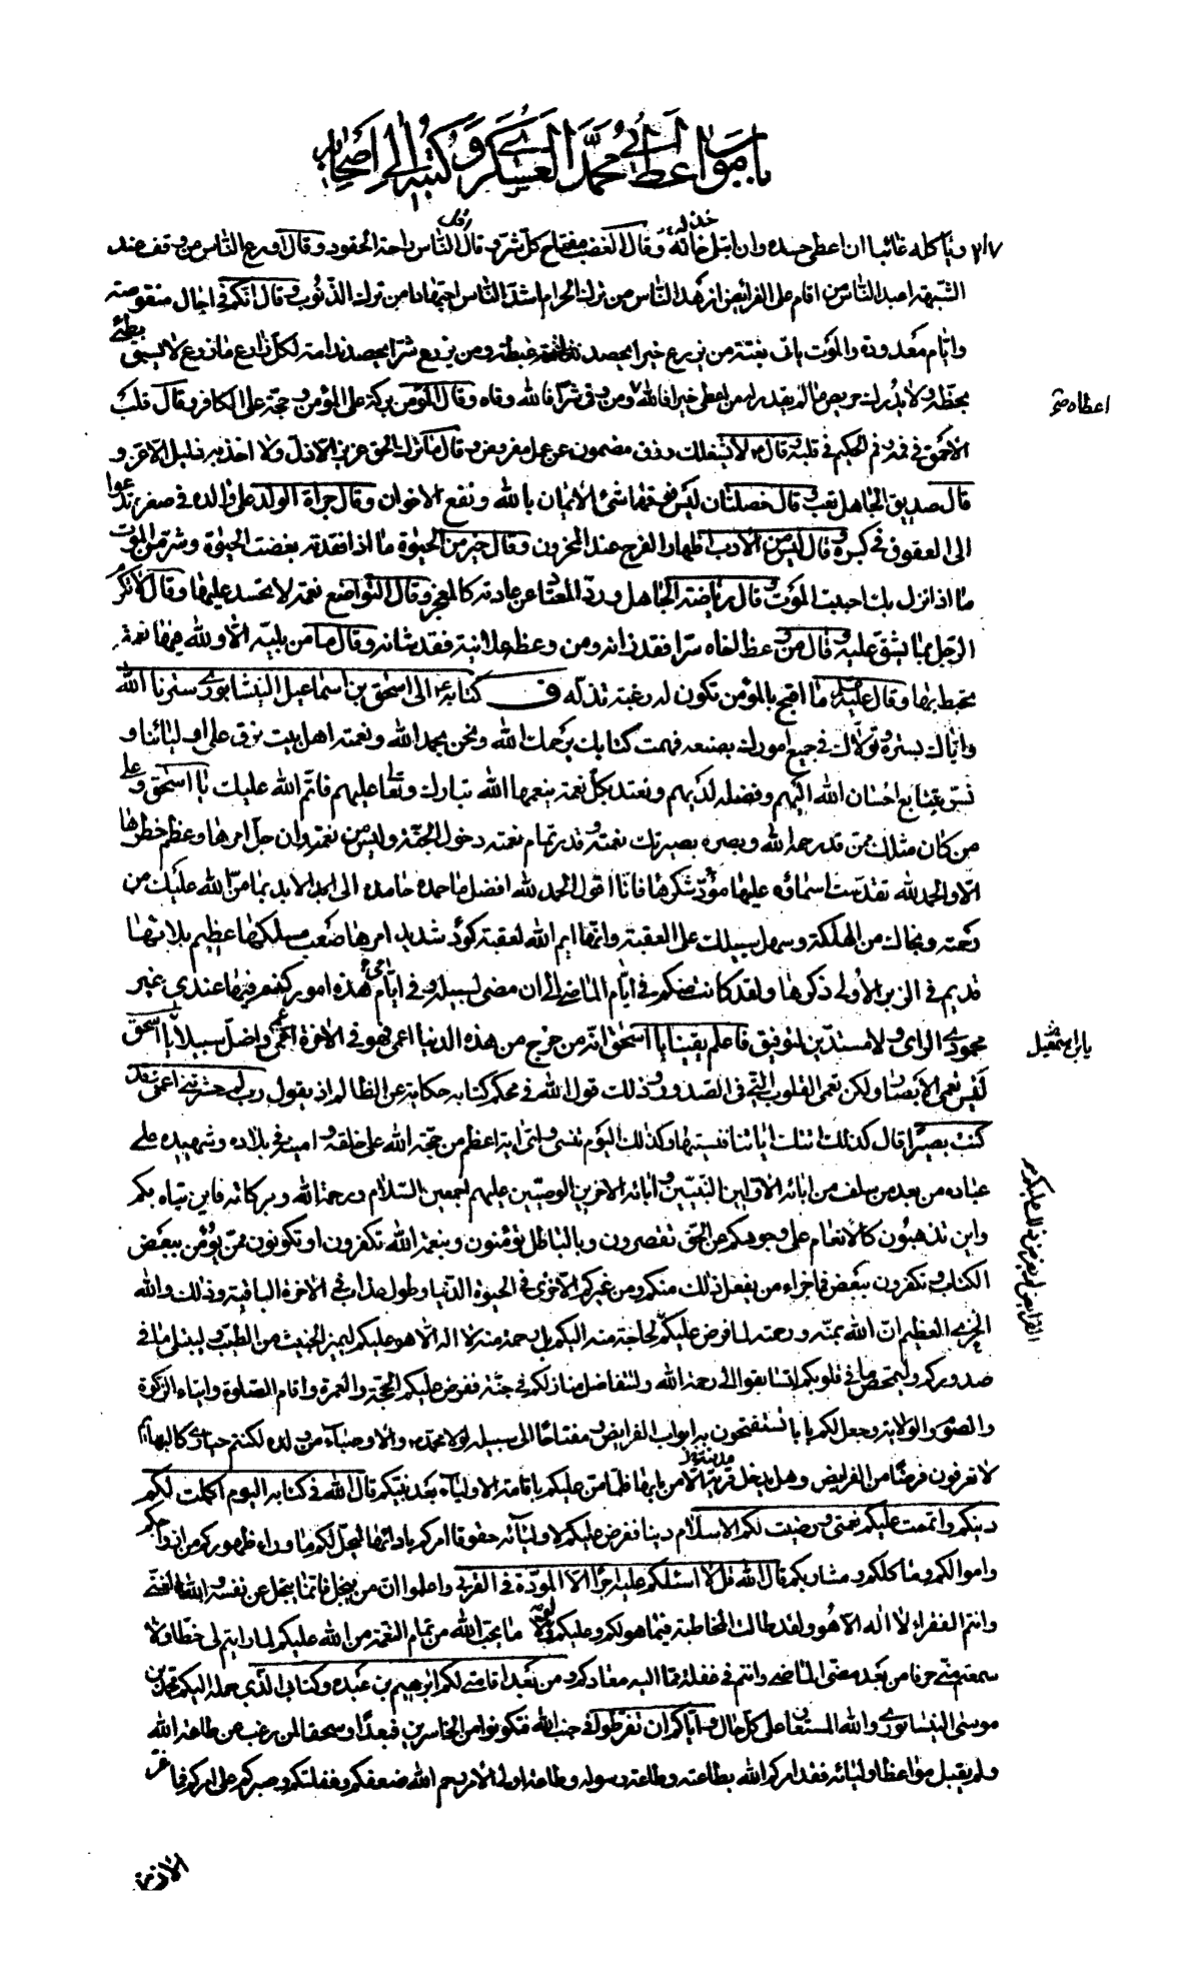 باب مواعظ أبي محمد العسكري وكتبه إلى أصحابه
٢١٧ ويأكله غائبا ان اعطى حسده وان ابتلى خانه خذله وقال الغضب مفتاح كل شر وقال اقل الناس راحة الحقود وقال اورع الناس من وقف عند
الشبهة اعبد الناس من اقام على الفرايض ازهد الناس من ترك الحرام اشد الناس اجتهادا من ترك الذنوب وقال انكم في اجال منقوصة
وايام معدودة والموت ياتي بغتة من يزرع خيرا يحصد غبطة ومن يزرع شرا يحصد ندامة لكل زارع ما زرع لا يسبق بطئ
بحظه ولا يدرك حريص ما لم يقدر له من اعطى خيرا فالله ومن وقى شرا فالله وقاه وقال المؤمن بركة على المؤمن وحجة على الكافر وقال قلب
اعطاه صح
الاحمق في فمه وفم الحكيم في قلبه وقال لا يشغلك رزق مضمون عن عمل مفروض وقال ما ترك الحق عزيز الا ذل ولا اخذ به ذليل الا عز و
قال صديق الجاهل تعب وقال خصلتان ليس فوقهما شئ الايمان بالله ونفع الاخوان وقال جراة الولد على والده في صغره تدعوا
الى العقوق في كبره وقال ليس من الادب اظهار الفرح عند المحزون وقال خير من الحيوة ما اذا فقدته بغضت الحيوة وشر من الموت
ما اذا نزل بك احببت الموت وقال رياضة الجاهل ورد المعتاد عن عادته كالمعجز وقال التواضع نعمة لا يحسد عليها وقال لا تكرم
الرجل بما يشق عليه وقال من وعظ اخاه سرا فقد زانه ومن وعظه علانية فقد شانه وقال ما من بلية الا ولله فيها نعمة
تحيط بها وقال عليه السلام ما اقبح بالمؤمن تكون له رغبة تذله ف كتابه الى اسحق بن اسماعيل النيشابوري سترنا الله
واياك بستره وتولاك في جميع امورك بصنعه فهمت كتابك يرحمك الله ونحن بحمد الله ونعمته اهل بيت نرق على اوليائنا و
نسر بتتابع احسان الله اليهم وفضله لديهم ونعتد بكل نعمة ينعمها الله تبارك وتعالى عليهم فاتم الله عليك يا اسحق وعلى
من كان مثلك ممن قد رحمه الله وبصره بصيرتك نعمته وقدر تمام نعمته دخول الجنة وليس من نعمة وان جل امرها وعظم خطرها
الا والحمد لله تقدست اسماؤه عليها مؤد شكرها فانا اقول الحمد لله افضل ما حمده حامده الى ابد الابد بما من الله عليك من
رحمته ونجاك من الهلكة وسهل سبيلك على العقبة وانها ايم الله لعقبة كؤد شديد امرها صعب مسلكها عظيم بلاؤها
قديم في الزبر الاولى ذكرها ولقد كانت منكم في ايام الماضي الى ان مضى لسبيله وفي ايامي هذه امور كنتم فيها عندي غير
محمودي الراى ولا مسددين التوفيق فاعلم يقينا يا اسحق انه من خرج من هذه الدنيا اعمى فهو في الاخرة اعمى واضل سبيلا يا اسحق
يابن اسمعيل
ليس تعمى الابصار ولكن تعمى القلوب التي في الصدور وذلك قول الله في محكم كتابه حكاية عن الظالم اذ يقول رب لم حشرتني اعمى وقد
كنت بصيرا قال كذلك اتتك اياتنا فنسيتها وكذلك اليوم تنسى واي اية اعظم من حجة الله على خلقه وامينه في بلاده وشهيده على
عباده من بعد من سلف من ابائه الاولين النبيين وابائه الاخرين الوصيين عليهم اجمعين السلام ورحمة الله وبركاته فاين تياه بكم
واين تذهبون كالانعام على وجوهكم عن الحق تصدفون وبالباطل تؤمنون وبنعمة الله تكفرون او تكونون ممن يؤمن ببعض
الكتاب وتكفرون ببعض فما جزاء من يفعل ذلك منكم ومن غيركم الا خزى في الحيوة الدنيا وطول عذاب في الاخرة الباقية وذلك والله
الخزي العظيم ان الله بمنه ورحمته لما فرض عليكم لحاجة منه اليكم بل برحمة منه لا اله الا هو عليكم ليميز الخبيث من الطيب وليبتلى ما في
الفرايض لم يفرض ذلك عليكم
صدوركم وليمحص ما في قلوبكم لتسابقوا الى رحمة الله ولتتفاضل منازلكم في جنته ففرض عليكم الحج والعمرة واقام الصلوة وايتاء الزكوة
والصوم والولاية وجعل لكم بابا تستفتحون به ابواب الفرايض ومفتاحا الى سبيله لولا محمد والاوصياء من ولده لكنتم حيارى كالبهائم
لا تعرفون فرضا من الفرايض وهل يدخل قرية مدينة الا من بابها فلما من عليكم باقامة الاولياء بعد نبيكم قال الله في كتابه اليوم اكملت لكم
دينكم واتممت عليكم نعمتي ورضيت لكم الاسلام دينا ففرض عليكم لاوليائه حقوقا امركم بادائها ليحل لكم ما وراء ظهوركم من ازواجكم
واموالكم وماكلكم ومشاربكم قال الله قل لا اسئلكم عليه اجرا الا المودة في القربى واعلموا ان من يبخل فانما يبخل عن نفسه والله الغني
وانتم الفقراء لا اله الا هو ولقد طالت المخاطبة فيما هو لكم وعليكم ولولا ما يحب الله من تمام النعمة من الله عليكم لما رايتم لى خطا ولا
سمعتم مني حرفا من بعد مضى الماضي وانتم في غفلة مما اليه معادكم ومن بعد اقامتي لكم ابرهيم بن عبده وكتابي الذي حمله اليكم محمد بن
موسى النيسابوري والله المستعان على كل حال واياكم ان تفرطوا في جنب الله فتكونوا من الخاسرين فبعدا وسحقا لمن رغب عن طاعة الله
ولم يقبل مواعظ اوليائه فقد امركم الله بطاعته وطاعة رسوله وطاعة اولى الامر رحم الله ضعفكم وغفلتكم وصبركم على امركم فما اغر
الانسان